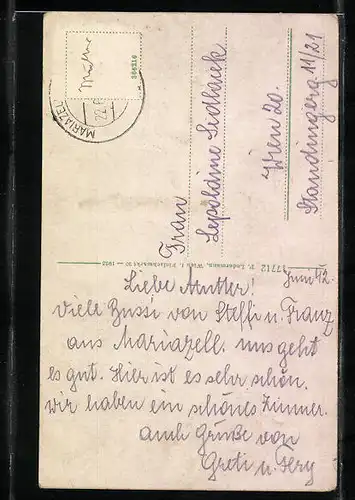 MARIAZEL
22.
364216
Frau
Leopoldine Sidlacek
Wien 20.
11/21
17712 P. Ledermann, Wien I. Fleischmarkt 20 — 1922
Juni 42.
Liebe Mutter!
Viele Bussi von Steffi u. Franz
aus Mariazell. uns geht
es gut. Hier ist es sehr schön.
wir haben ein schönes Zimmer.
auch Grüße von
Greti u. Fery